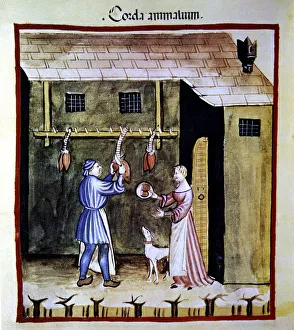 Corda animalium.